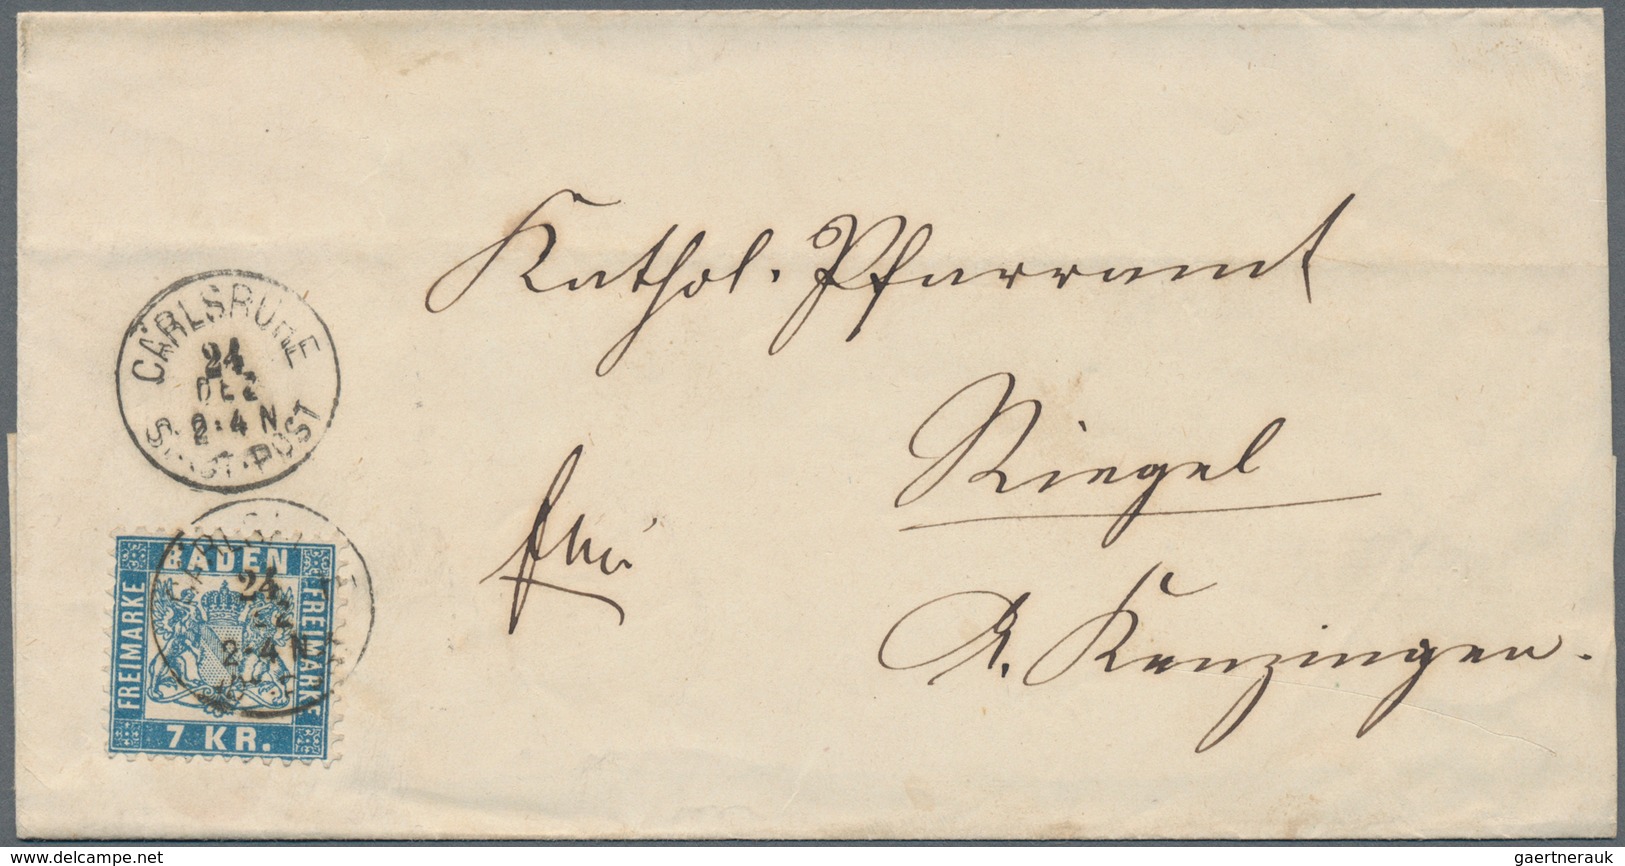 Kathol. Pfarramt
CARLSRUHE
24
DEZ
2-4 N
STADT-POST
Riegel
frei
A. Kenzingen.
24
2-4 N
BADEN
FREIMARKE
FREIMARKE
7 KR.
www.delcampe.net
gaertnerauk